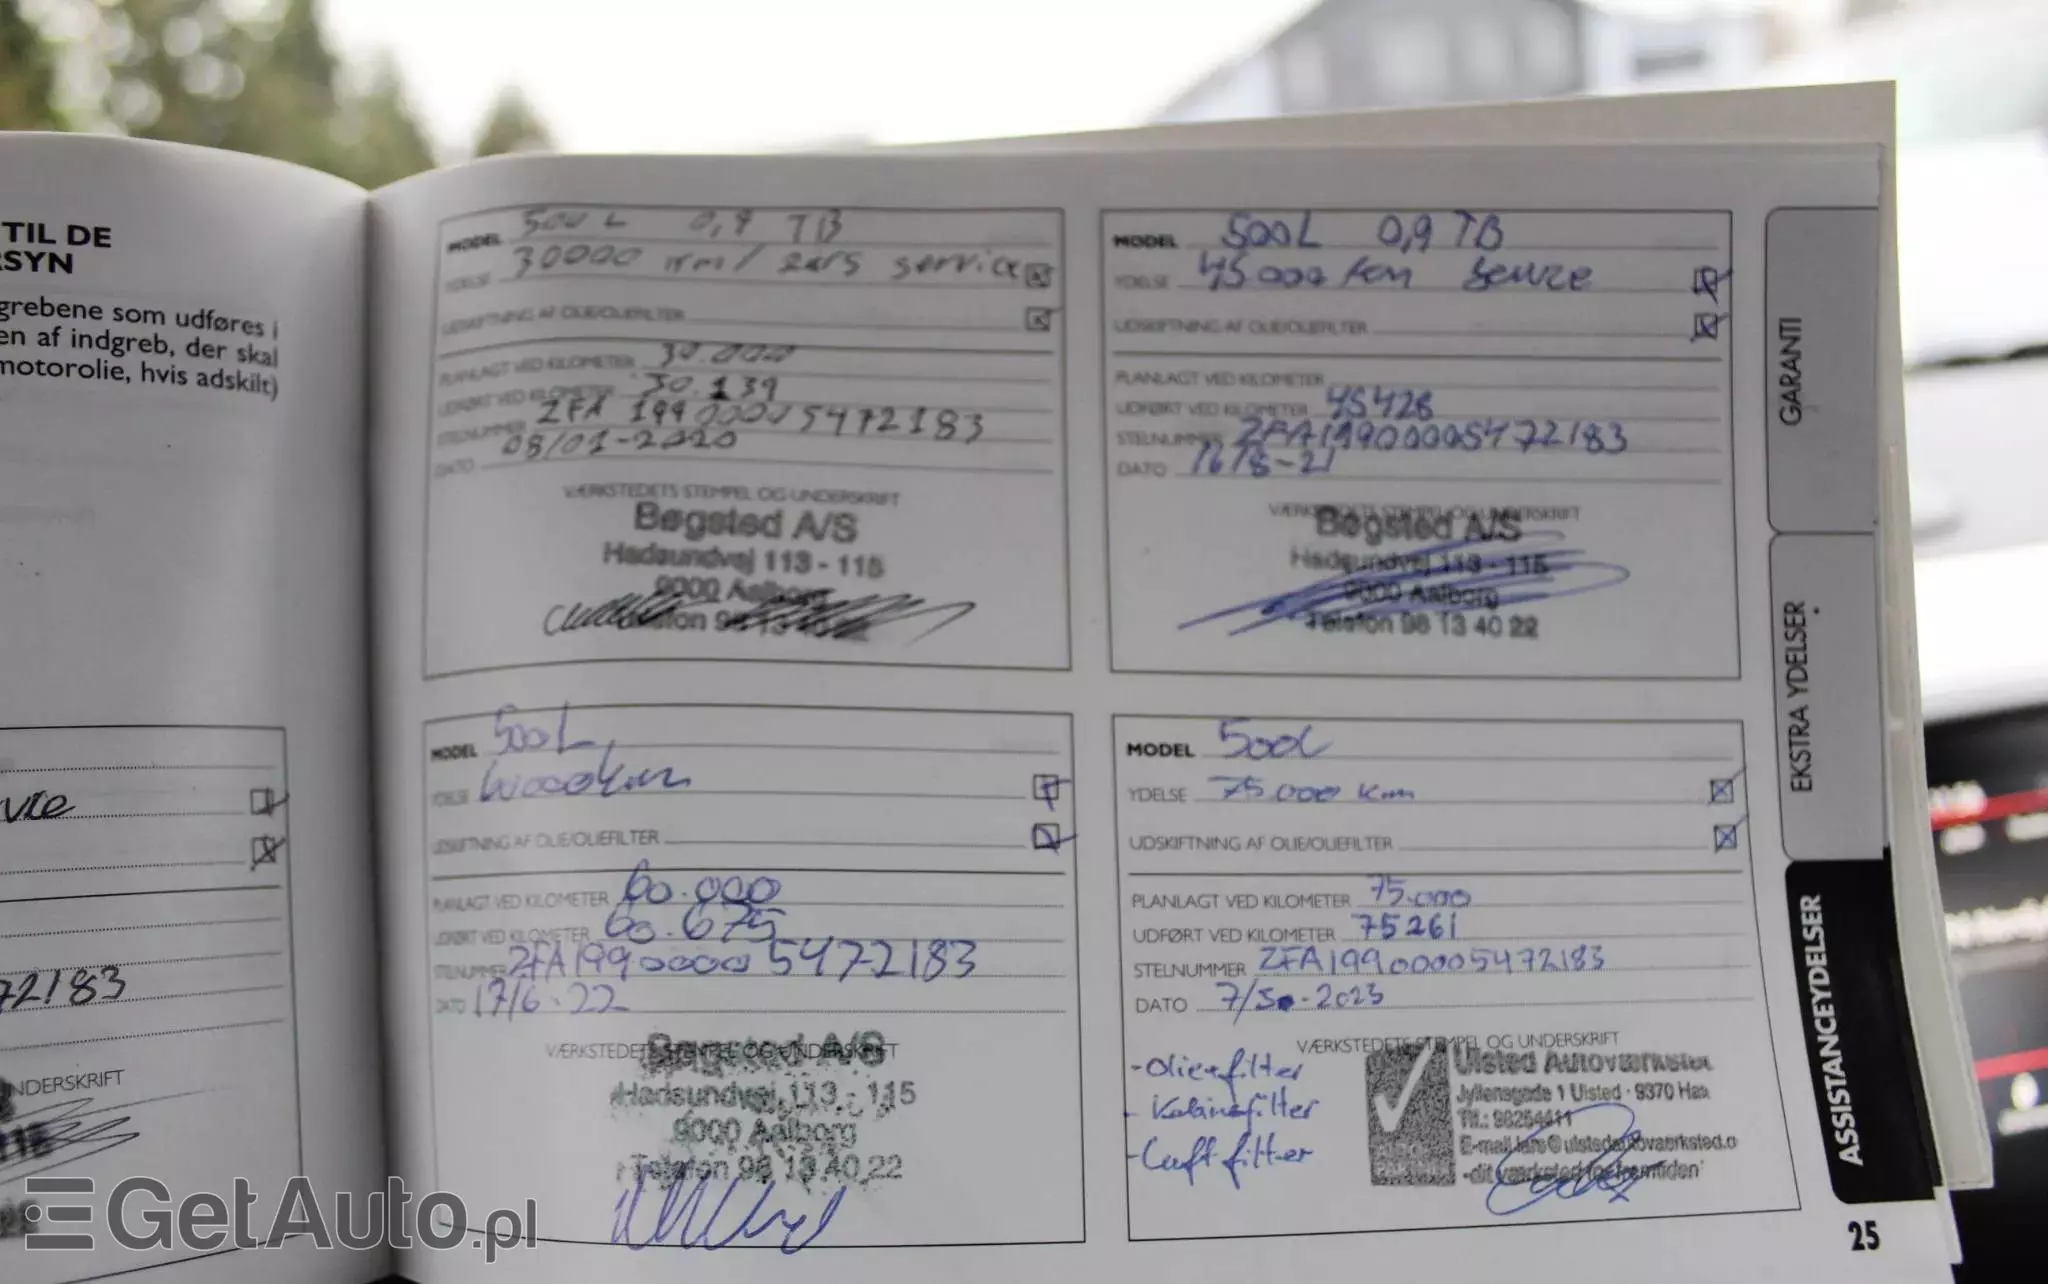 TIL DE
RSYN
grebene som udføres i
en af indgreb, der skal
motorolie, hvis adskilt)
72183
NDERSKRIFT
MODEL 500L 0,9 TB
YDELSE 30000 km/ 2års service
UDSKIFTNING AF OLIE/OLIEFILTER
PLANLAGT VED KILOMETER 30.000
UDFØRT VED KILOMETER 30.139
STELNUMMER ZFA 19900005472183
DATO 08/01-2020
VÆRKSTEDETS STEMPEL OG UNDERSKRIFT
Bøgsted A/S
Hadsundvej 113 - 115
9000 Aalborg
Telefon 98 13 40 22
MODEL 500L 0,9 TB
YDELSE 45000 km
UDSKIFTNING AF OLIE/OLIEFILTER
PLANLAGT VED KILOMETER
UDFØRT VED KILOMETER 45428
STELNUMMER ZFA19900005472183
DATO 16/8-21
VÆRKSTEDETS STEMPEL OG UNDERSKRIFT
Bøgsted A/S
Hadsundvej 113 - 115
9000 Aalborg
Telefon 98 13 40 22
MODEL 500L
YDELSE 60000km
UDSKIFTNING AF OLIE/OLIEFILTER
PLANLAGT VED KILOMETER 60.000
UDFØRT VED KILOMETER 60.675
STELNUMMER ZFA19900005472183
DATO 17/6-22
VÆRKSTEDETS STEMPEL OG UNDERSKRIFT
Bøgsted A/S
Hadsundvej 113 - 115
9000 Aalborg
Telefon 98 13 40 22
MODEL 500L
YDELSE 75.000 km
UDSKIFTNING AF OLIE/OLIEFILTER
PLANLAGT VED KILOMETER 75.000
UDFØRT VED KILOMETER 75261
STELNUMMER ZFA19900005472183
DATO 7/5-2023
VÆRKSTEDETS STEMPEL OG UNDERSKRIFT
-Oliefilter
- Kabinefilter
-Luftfilter
Ulsted Autoværksted
Jyllensgade 1 Ulsted - 9370 Hals
Tlf.: 98254411
-dit værksted for fremtiden
GARANTI
EKSTRA YDELSER
ASSISTANCEYDELSER
25
GetAuto.pl